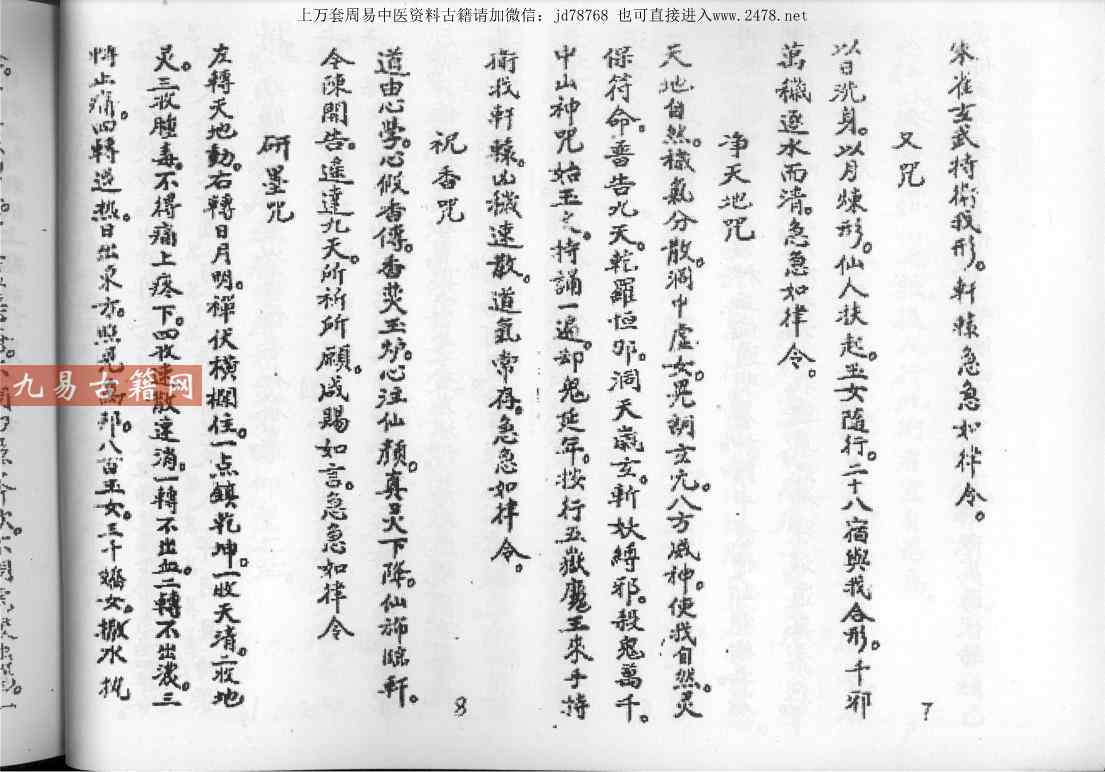 上万套周易中医资料古籍请加微信：jd78768 也可直接进入www.2478.net
朱雀玄武持衛我形。軒轅急急如律令。
又咒
以日洗身。以月煉形。仙人扶起。玉女隨行。二十八宿與我合形。千邪
萬穢逐水而清。急急如律令。
净天地咒
天地自然。穢氣分散。洞中虛女晃朗玄元。八方威神。使我自然。灵
保符命。普告九天。乾羅恒那。洞天嵐玄。斬妖縛邪。殺鬼萬千。
中山神咒始玉之。持誦一遍。却鬼延年。按行五嶽魔王來手持
衛我軒轅。凶穢速散。道氣常存。急急如律令。
祝香咒
道由心學。心假香傳。香焚玉炉。心注仙顏。真灵下降。仙旆臨軒。
令陳開告。遥達九天。所祈所願。咸賜如言。急急如律令
研墨咒
左轉天地動。右轉日月明。禪伏橫欄住。一点鎮乾坤。一收天清。二收地
灵。三收腫毒。不得痛上疼下。四收速散速消。一轉不出血。二轉不出濃。三
轉止痛。四轉退热。日出東方。照見萬邦。八百玉女。三千嬌女。撒水扒
7
8
九易古籍网